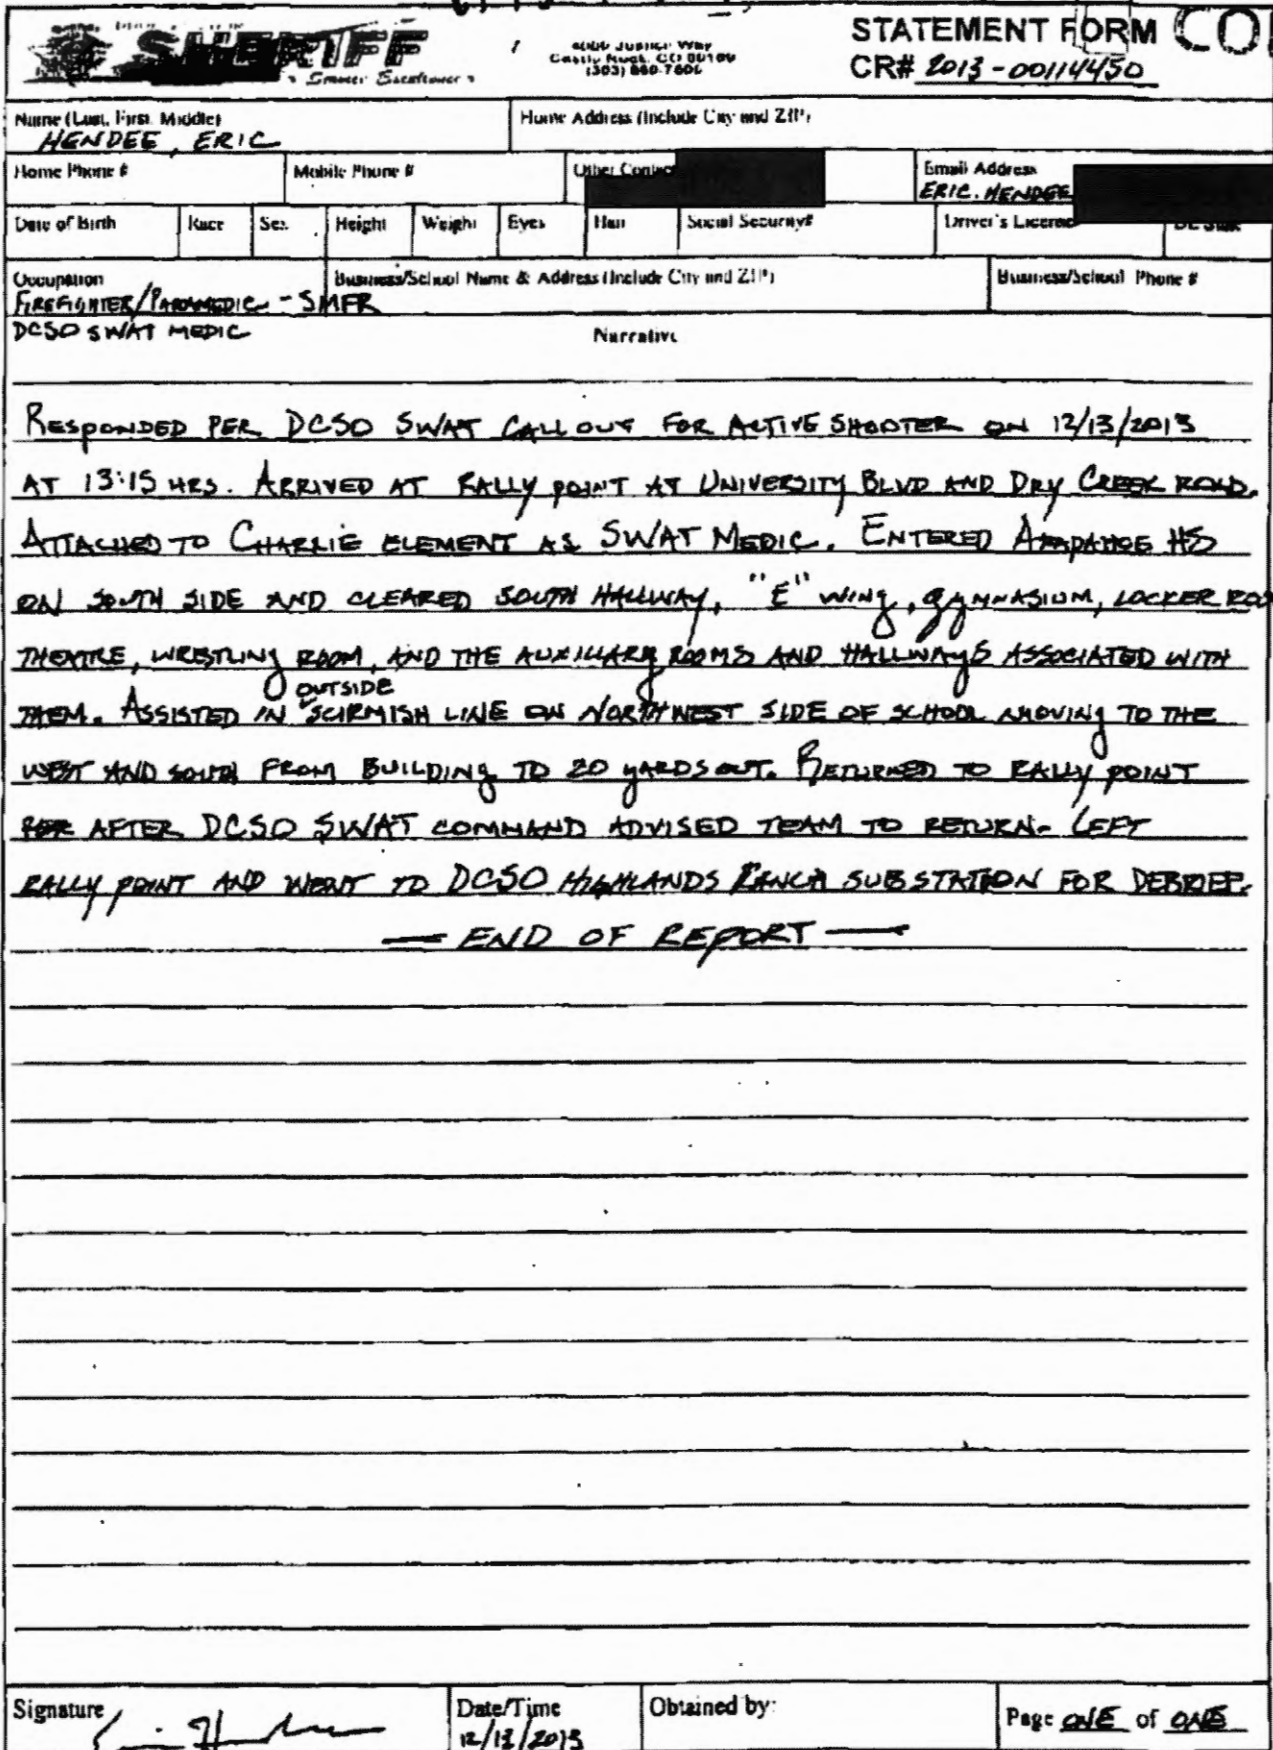 SHERIFF
STATEMENT FORM
CR# 2013-00114450
Castle Rock, CO 80109
(303) 660-7500
Name (Last, First, Middle)
HENDEE, ERIC
Home Address (Include City and ZIP)
Home Phone #
Mobile Phone #
Other Contact
Email Address
ERIC.HENDEE
Date of Birth
Race
Sex
Height
Weight
Eyes
Hair
Social Security#
Driver's License
Occupation
FIREFIGHTER/PARAMEDIC - SMFR
DCSO SWAT MEDIC
Business/School Name & Address (Include City and ZIP)
Business/School Phone #
Narrative
RESPONDED PER DCSO SWAT CALL OUT FOR ACTIVE SHOOTER ON 12/13/2013
AT 13:15 HRS. ARRIVED AT RALLY POINT AT UNIVERSITY BLVD AND DRY CREEK ROAD.
ATTACHED TO CHARLIE ELEMENT AS SWAT MEDIC. ENTERED ARAPAHOE HS
ON SOUTH SIDE AND CLEARED SOUTH HALLWAY, "E" WING, GYMNASIUM, LOCKER ROO
THEATRE, WRESTLING ROOM, AND THE AUXILLARY ROOMS AND HALLWAYS ASSOCIATED WITH
THEM. ASSISTED IN OUTSIDE SCIRMISH LINE ON NORTHWEST SIDE OF SCHOOL MOVING TO THE
WEST AND SOUTH FROM BUILDING TO 20 YARDS OUT. RETURNED TO RALLY POINT
AFTER DCSO SWAT COMMAND ADVISED TEAM TO RETURN. LEFT
RALLY POINT AND WENT TO DCSO HIGHLANDS RANCH SUBSTATION FOR DEBRIEF.
— END OF REPORT —
Signature
Date/Time
12/13/2013
Obtained by:
Page ONE of ONE